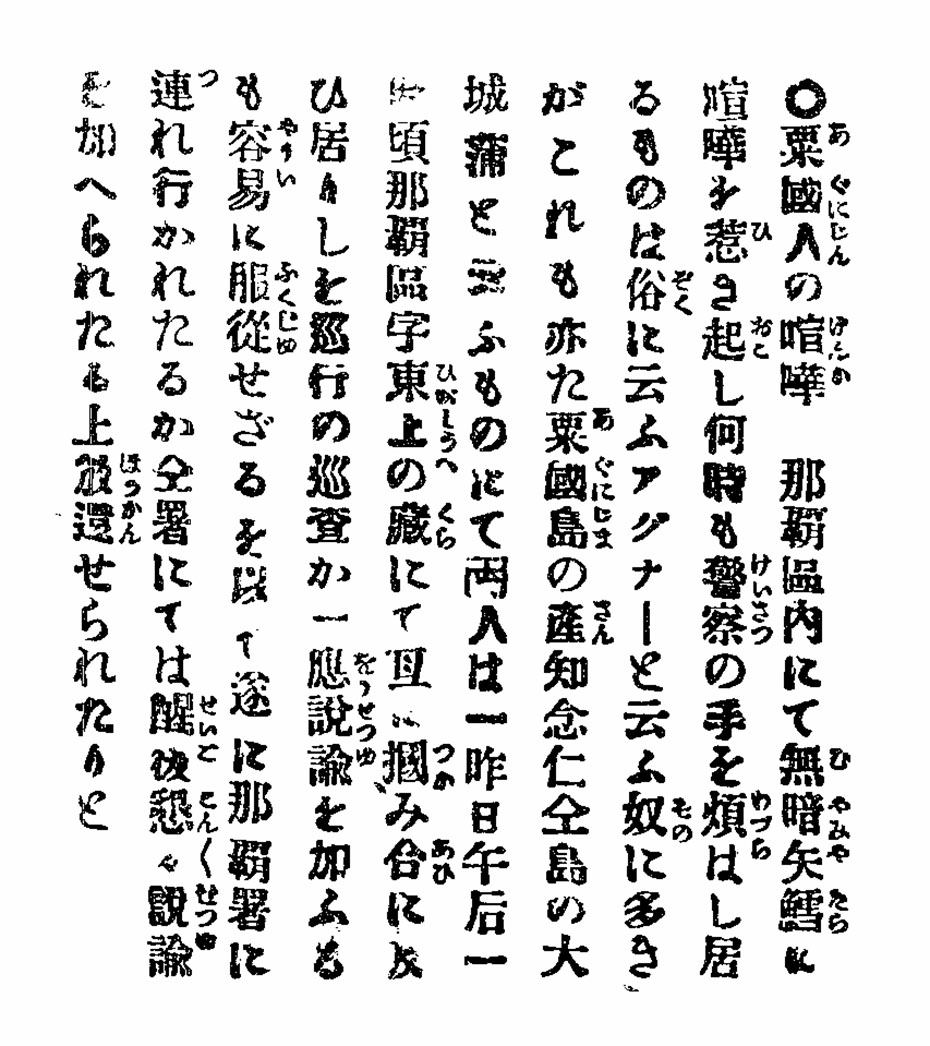 〇粟國人の喧嘩　那覇區内にて無暗矢鱈に
喧嘩を惹き起し何時も警察の手を煩はし居
るものは俗に云ふアグナーと云ふ奴に多き
がこれも亦た粟國島の産知念仁仝島の大
城蒲と云ふものにて両人は一昨日午后一
時頃那覇區字東上の藏にて互に摑み合に及
ひ居りしを巡行の巡査か一應説諭を加ふる
も容易に服從せざるを以て遂に那覇署に
連れ行かれたるか仝署にては醒後懇々説諭
を加へられたる上放還せられたりと